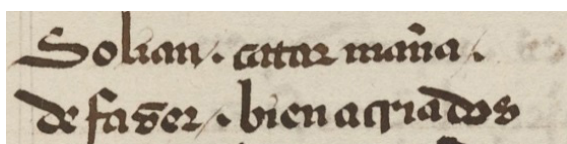 Solian. catar man̄a.
de fazer /. bien acriados